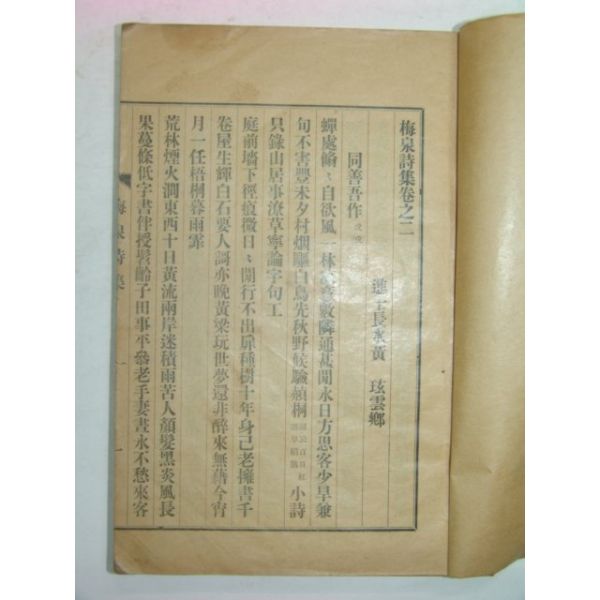 梅泉詩集卷之二
進士長水黃 玹雲鄉
同善吾作
蟬處翛〻自欲風一林意數隣通甚閒永日方思客少旱兼
句不害豐未夕村烟驅白鳥先秋野候驗頳桐小詩
只錄山居事潦草寧論字句工
庭前墻下徑痕微日〻閒行不出扉種樹十年身已老擁書千
卷屋生輝白石要人謌亦晚黃粱玩世夢還非醉來無藉今宵
月一任梧桐暮雨霏
荒林煙火澗東西十日黃流兩岸迷積雨苦人顏髮黑炎風長
果蔓條低字書伴授髫齡子田事平參老手妻晝永不愁來客
梅泉詩集